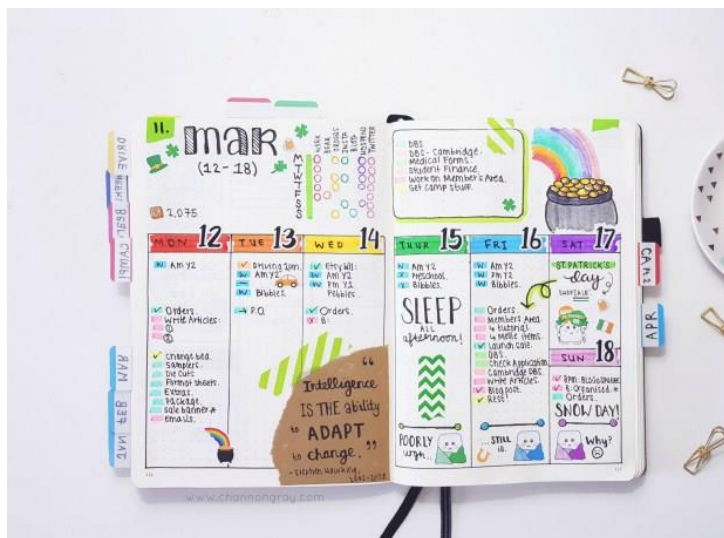 11.
MAR
(12-18)
2,075
WORK
INSTA
BLOG
TWITTER
M
T
W
T
F
S
S
DBS
DBS - Cambridge.
Medical Forms.
Student Finance.
Work on Member's Area.
Get Camp Stuff.
MON 12
W Am Y2
Orders.
Write Articles:
Change bed.
Samplers.
Die Cuts
Format sheets.
Extras.
Package.
Sale banner
Emails.
TUE 13
Driving
W Am Y2
W Bibbles.
→ P.O.
WED 14
Etsy
W Am Y2
W Pm Y2
Orders.
"Intelligence
IS THE ability
to ADAPT
to change."
- Stephen Hawking.
1942-2018
THUR 15
W Am Y2
Preschool
Bibbles.
SLEEP
ALL
afternoon!
POORLY
FRI 16
W Am Y2
W Pm Y2
W Bibbles.
Orders.
Members Area.
4 tutorial
Launch sale.
DBS.
Check Application
Cambridge DBS.
Write Articles.
Blog post.
Rest!
...STILL
SAT 17
ST.PATRICK'S
day
SUN 18
Organised.
Orders.
SNOW DAY!
Why?
CAMP
APR
MAR
FEB
JAN
www.channongray.com